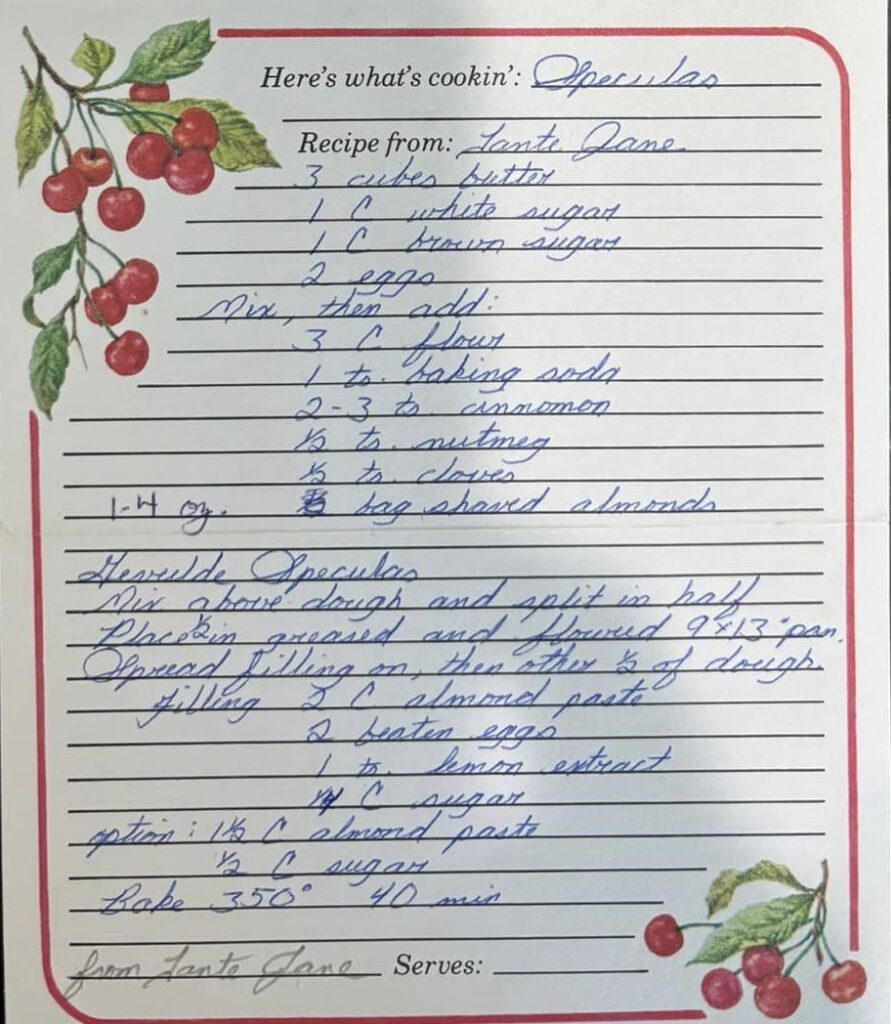 Here's what's cookin': Speculas
Recipe from: Tante Jane
3 cubes butter
1 C white sugar
1 C brown sugar
2 eggs
Mix, then add:
3 C flour
1 ts. baking soda
2-3 ts. cinnomon
½ ts. nutmeg
½ ts. cloves
1-4 oz. bag shaved almonds
Gevulde Speculas
Mix above dough and split in half
Place ½ in greased and floured 9"x13" pan.
Spread filling on, then other ½ of dough.
filling 2 C almond paste
2 beaten eggs
1 ts. lemon extract
C sugar
option: 1½ C almond paste
½ C sugar
Bake 350° 40 min
from Tante Jane Serves: